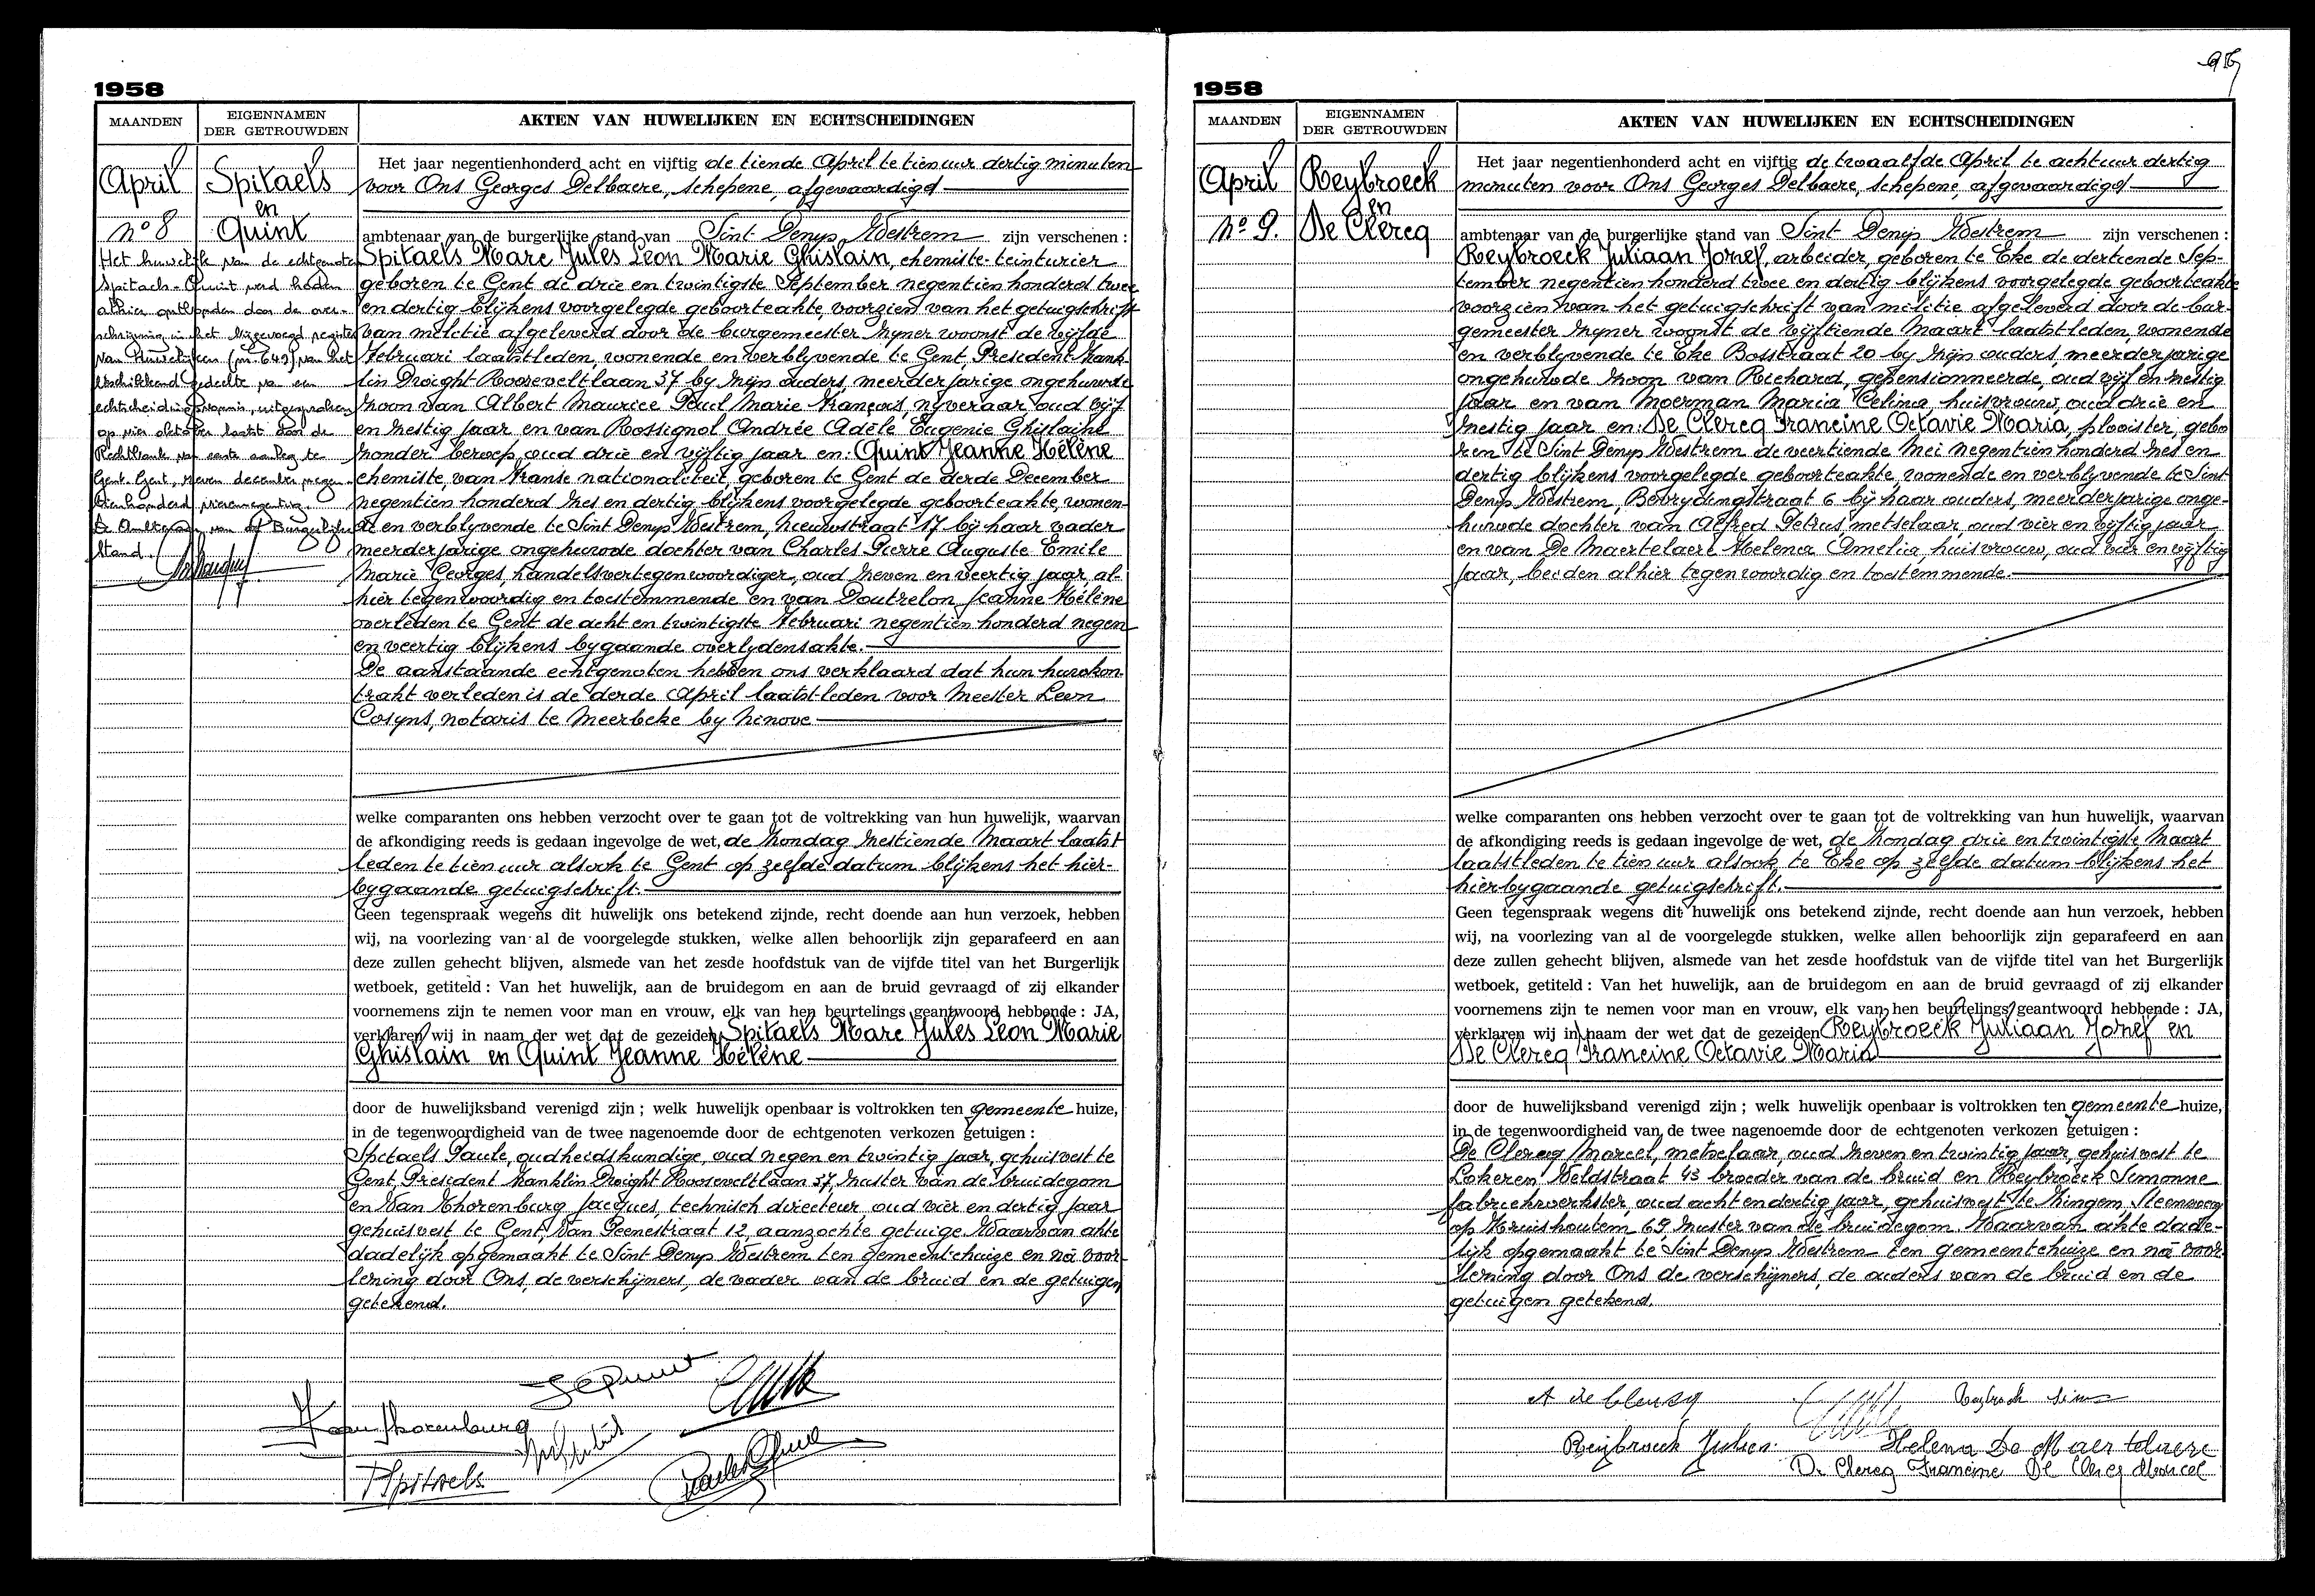 1958
MAANDEN
EIGENNAMEN
DER GETROUWDEN
AKTEN VAN HUWELIJKEN EN ECHTSCHEIDINGEN
April
Spitaels
en
nº 8
Quint
Het huwelijk van de echtgenoten
Spitaels-Quint werd heden
alhier ontbonden door de over-
schrijving in het bijgevoegd register
van Huwelijken (nr 649) van het
beschikkend gedeelte van een
echtscheidingsvonnis, uitgesproken
op vier oktober laatst door de
Rechtbank van eerste aanleg te
Gent. Gent, zeven december negen-
tienhonderd vierennegentig.
De Ambtenaar van de Burgerlijke
Stand.
Het jaar negentienhonderd acht en vijftig de tiende April te tien uur dertig minuten
voor Ons Georges Delbaere, schepene, afgevaardigd
ambtenaar van de burgerlijke stand van Sint Denys Westrem zijn verschenen :
Spitaels Marc Jules Leon Marie Ghislain, chemiste-teinturier
geboren te Gent de drie en twintigste September negentien honderd twee
en dertig blijkens voorgelegde geboorteakte, voorzien van het getuigschrift
van militie afgeleverd door de burgemeester zijner woonst de vijfde
Februari laatstleden, wonende en verblyvende te Gent, President Frank-
lin Dwight Rooseveltlaan 37 by zijn ouders, meerderjarige ongehuwde
zoon van Albert Maurice Paul Marie François, nyveraar oud vijf
en zestig jaar en van Rossignol Andrée Adèle Eugenie Ghislaine
zonder beroep, oud drie en vijftig jaar en: Quint Jeanne Hélène
chemiste, van Franse nationaliteit, geboren te Gent de derde December
negentien honderd zes en dertig blijkens voorgelegde geboorteakte, wonen-
de en verblyvende te Sint Denys Westrem, Nieuwstraat 17 bij haar vader
meerderjarige ongehuwde dochter van Charles Pierre Auguste Emile
Marie Georges, handelsvertegenwoordiger, oud zeven en veertig jaar, al-
hier tegenwoordig en toestemmende en van Doutrelon Jeanne Hélène
overleden te Gent de acht en twintigste Februari negentien honderd negen
en veertig blijkens bygaande overlydensakte.
De aanstaande echtgenoten hebben ons verklaard dat hun huwkon-
trakt verleden is de derde April laatstleden voor Meester Leon
Cosyns, notaris te Meerbeke by Ninove
welke comparanten ons hebben verzocht over te gaan tot de voltrekking van hun huwelijk, waarvan
de afkondiging reeds is gedaan ingevolge de wet, de zondag zestiende Maart laatst
leden te tien uur alsook te Gent op zelfde datum blijkens het hier-
bygaande getuigschrift.
Geen tegenspraak wegens dit huwelijk ons betekend zijnde, recht doende aan hun verzoek, hebben
wij, na voorlezing van al de voorgelegde stukken, welke allen behoorlijk zijn geparafeerd en aan
deze zullen gehecht blijven, alsmede van het zesde hoofdstuk van de vijfde titel van het Burgerlijk
wetboek, getiteld : Van het huwelijk, aan de bruidegom en aan de bruid gevraagd of zij elkander
voornemens zijn te nemen voor man en vrouw, elk van hen beurtelings geantwoord hebbende : JA,
verklaren wij in naam der wet dat de gezeiden Spitaels Marc Jules Leon Marie
Ghislain en Quint Jeanne Hélène
door de huwelijksband verenigd zijn ; welk huwelijk openbaar is voltrokken ten gemeente huize,
in de tegenwoordigheid van de twee nagenoemde door de echtgenoten verkozen getuigen :
Spitaels Paule, oudheidskundige, oud negen en twintig jaar, gehuisvest te
Gent, President Franklin Dwight Rooseveltlaan 37, zuster van de bruidegom
en Van Thorenburg Jacques, technisch directeur, oud vier en dertig jaar
gehuisvest te Gent, Van Peenestraat 12, aanzochte getuige. Waarvan akte
dadelijk opgemaakt te Sint Denys Westrem ten gemeentehuize en na voor-
lezing door Ons, de verschijners, de vader van de bruid en de getuigen
getekend.
Van Thorenburg
Spitaels
95
1958
MAANDEN
EIGENNAMEN
DER GETROUWDEN
AKTEN VAN HUWELIJKEN EN ECHTSCHEIDINGEN
April
Reybroeck
en
Nº 9.
De Clercq
Het jaar negentienhonderd acht en vijftig de twaalfde April te acht uur dertig
minuten voor Ons Georges Delbaere, schepene, afgevaardigd
ambtenaar van de burgerlijke stand van Sint Denys Westrem zijn verschenen :
Reybroeck Juliaan Jozef, arbeider, geboren te Eke de dertiende Sep-
tember negentien honderd twee en dertig blijkens voorgelegde geboorteakte
voorzien van het getuigschrift van militie afgeleverd door de bur-
gemeester zijner woonst de vijftiende Maart laatstleden, wonende
en verblyvende te Eke Bosstraat 20 by zijn ouders, meerderjarige
ongehuwde zoon van Richard, gepensionneerde, oud vijf en zestig
jaar en van Moerman Maria Celina, huisvrouw, oud drie en
zestig jaar en: De Clercq Francine Octavie Maria, plooister, gebo
ren te Sint Denys Westrem de veertiende Mei negentien honderd zes en
dertig blijkens voorgelegde geboorteakte, wonende en verblyvende te Sint
Denys Westrem, Bevrydingstraat 6 bij haar ouders, meerderjarige onge-
huwde dochter van Alfred Petrus, metselaar, oud vier en vijftig jaar
en van De Maertelaere Helena Amelia, huisvrouw, oud vier en vijftig
jaar, beiden alhier tegenwoordig en toestemmende.
welke comparanten ons hebben verzocht over te gaan tot de voltrekking van hun huwelijk, waarvan
de afkondiging reeds is gedaan ingevolge de wet, de zondag drie en twintigste Maart
laatstleden te tien uur alsook te Eke op zelfde datum blijkens het
hierbygaande getuigschrift.
Geen tegenspraak wegens dit huwelijk ons betekend zijnde, recht doende aan hun verzoek, hebben
wij, na voorlezing van al de voorgelegde stukken, welke allen behoorlijk zijn geparafeerd en aan
deze zullen gehecht blijven, alsmede van het zesde hoofdstuk van de vijfde titel van het Burgerlijk
wetboek, getiteld : Van het huwelijk, aan de bruidegom en aan de bruid gevraagd of zij elkander
voornemens zijn te nemen voor man en vrouw, elk van hen beurtelings geantwoord hebbende : JA,
verklaren wij in naam der wet dat de gezeiden Reybroeck Juliaan Jozef en
De Clercq Francine Octavie Maria
door de huwelijksband verenigd zijn ; welk huwelijk openbaar is voltrokken ten gemeente huize,
in de tegenwoordigheid van de twee nagenoemde door de echtgenoten verkozen getuigen :
De Clercq Marcel, metselaar, oud zeven en twintig jaar, gehuisvest te
Lokeren Veldstraat 43 broeder van de bruid en Reybroeck Simonne
fabriekwerkster, oud acht en dertig jaar, gehuisvest te Zingem, Steenweg
op Kruishoutem 69, zuster van de bruidegom. Waarvan akte dade-
lijk opgemaakt te Sint Denys Westrem ten gemeentehuize en na voor
lezing door Ons de verschijners, de ouders van de bruid en de
getuigen getekend.
A de Clercq
Reybroeck Julien.
Helena De Maertelaere
De Clercq Francine De Clercq Marcel